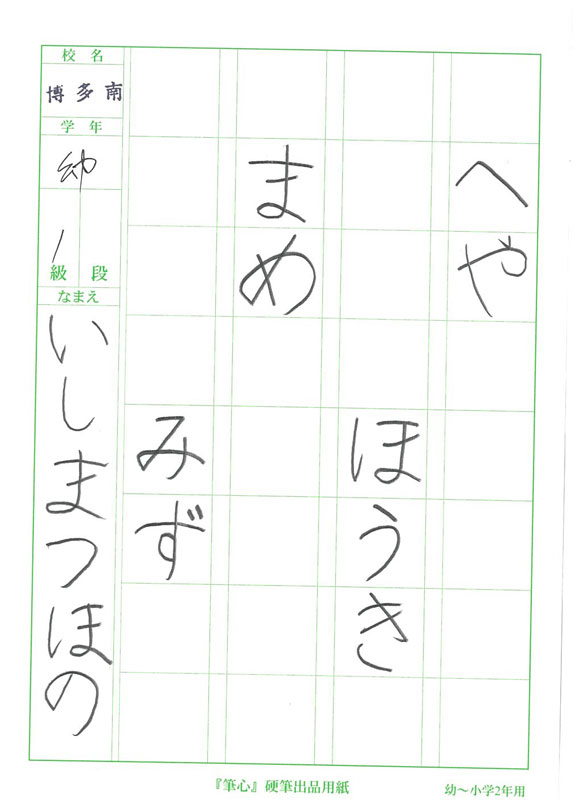 へや
ほうき
まめ
みず
校名
博多南
学年
幼
1
級 段
なまえ
いしまつほの
『筆心』硬筆出品用紙
幼〜小学2年用